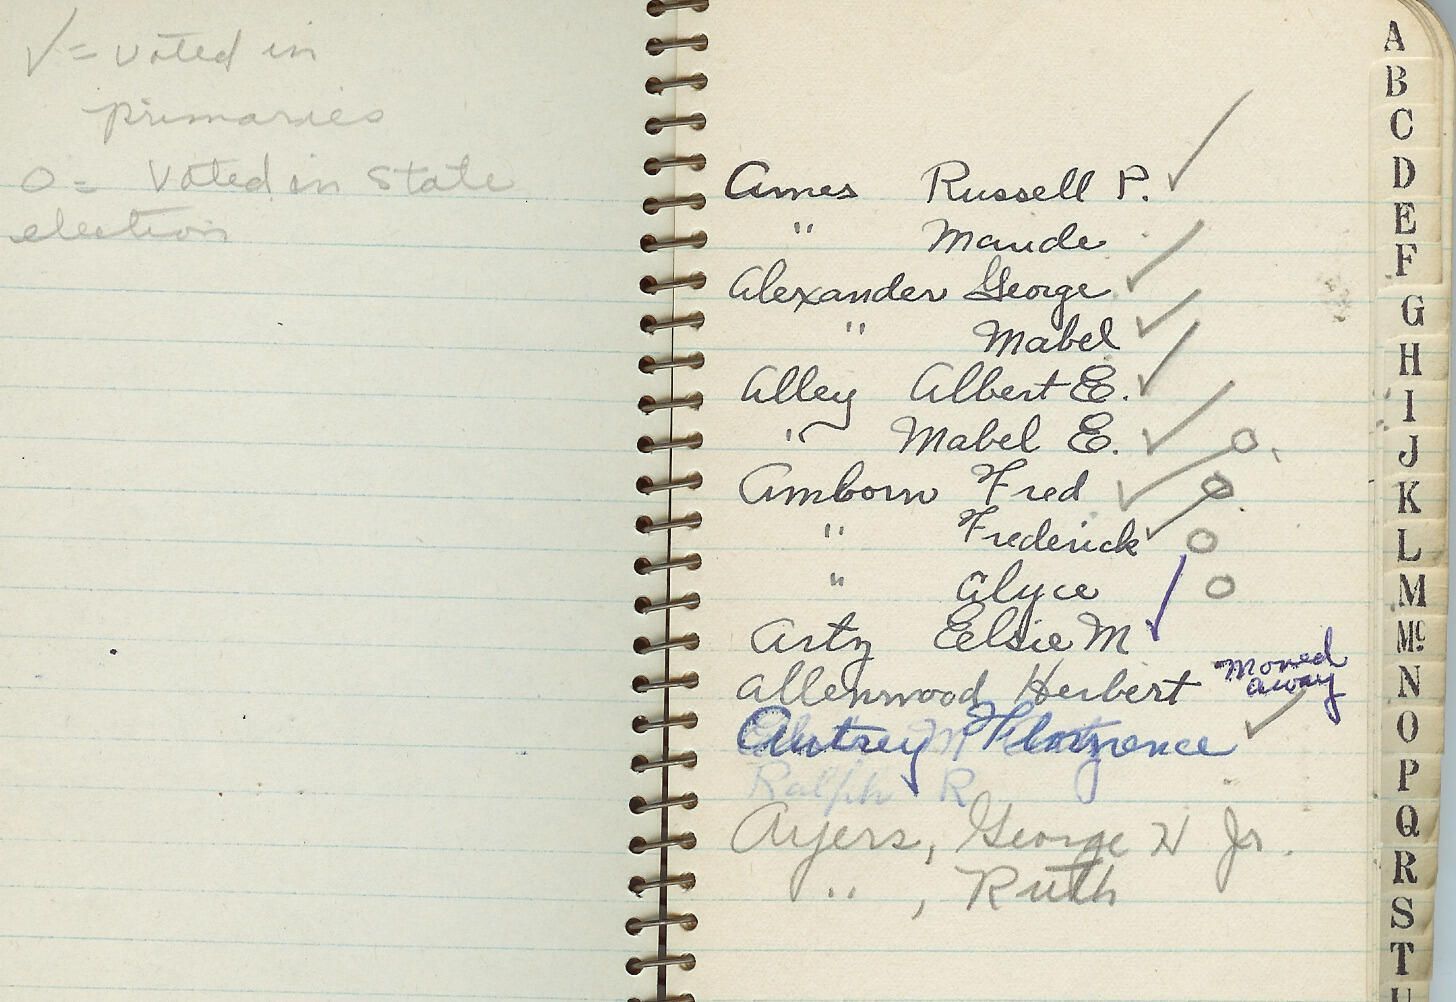 ✓ = voted in
primaries
O = Voted in State
election
Ames Russell P. ✓
" Maude
Alexander George ✓
" Mabel ✓
Alley Albert E. ✓
" Mabel E. ✓ O
Amborn Fred ✓ O
" Frederick ✓ O
" Alyce O
Arty Eelsie M ✓
Allenwood Herbert Moved
away
Autrey Florence ✓
Ralph R
Ayers, George W Jr.
" , Ruth
A
B
C
D
E
F
G
H
I
J
K
L
M
Mc
N
O
P
Q
R
S
T
U